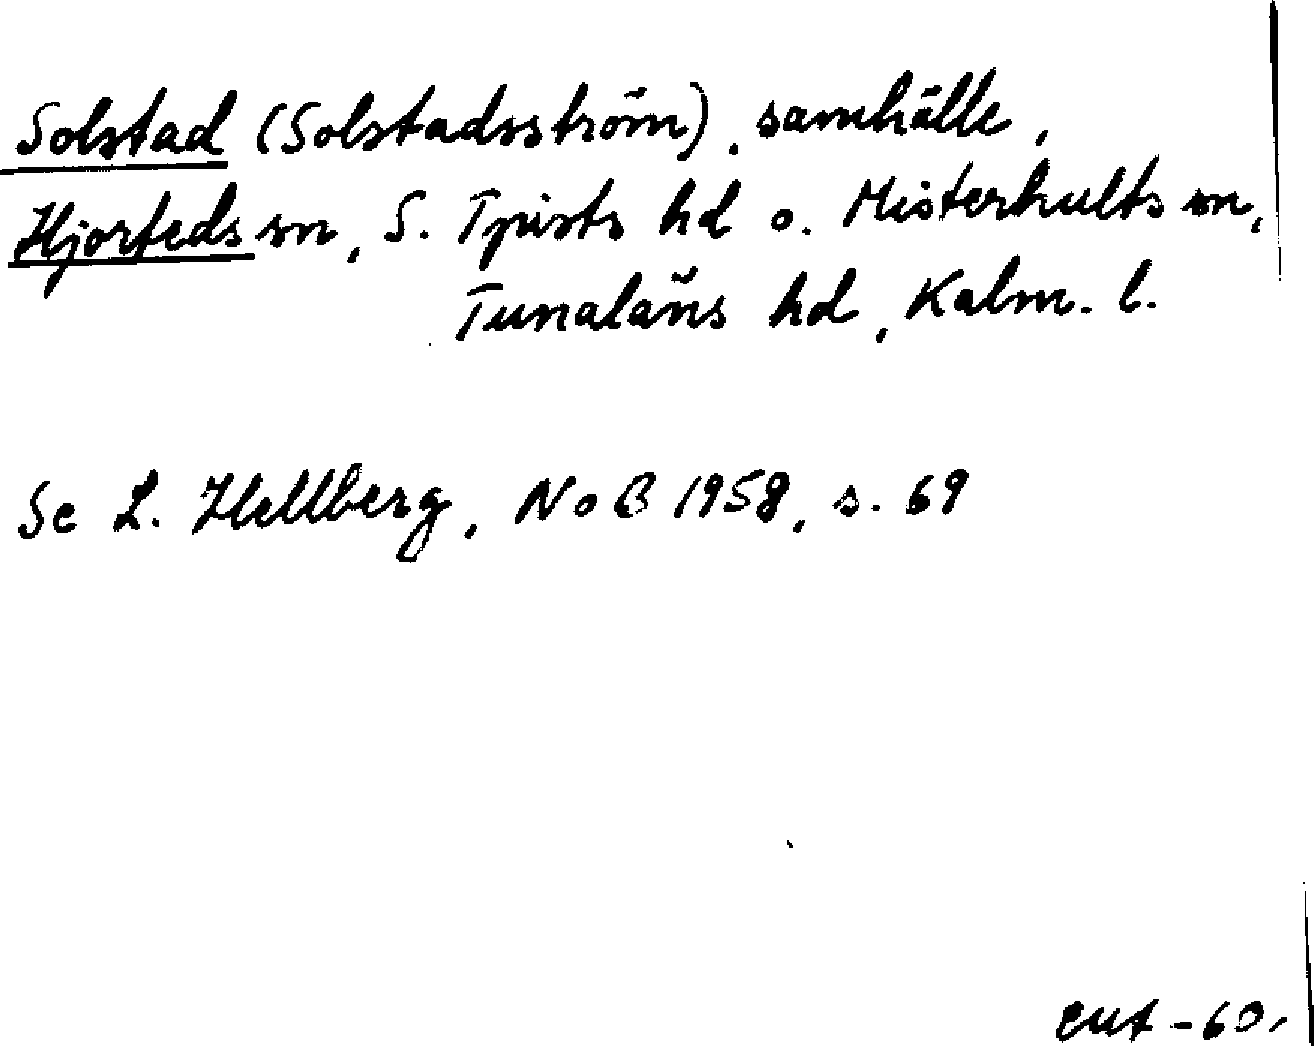 Solstad (Solstadsström), samhälle,
Hjorteds sn, S. Tjusts hd o. Misterhults sn,
Tunaläns hd, Kalm. l.
Se L. Hellberg, NoB 1958, s. 69
exc -60.